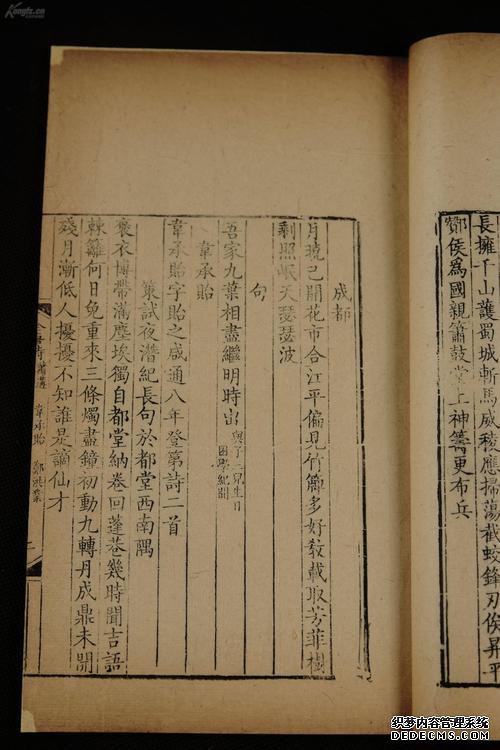 长擁千山護蜀城斬馬威稜應掃蕩截蛟鋒刃俟昇平
酇侯爲國親簫鼓堂上神籌更布兵
成都
月曉已開花市合江平偏見竹簰多好教載取芳菲樹
剩照岷天瑟瑟波
句
吾家九葉相盡繼明時出
兒生日
困學紀聞
韋承貽
韋承貽字貽之咸通八年登第詩二首
策試夜潛紀長句於都堂西南隅
褒衣博帶滿塵埃獨自都堂納卷回蓬巷幾時聞吉語
棘籬何日免重來三條燭盡鐘初動九轉丹成鼎未開
殘月漸低人擾擾不知誰是謫仙才
韋承貽 鄭洪業
Kongfz.cn
织梦内容管理系统
DEDECMS.COM